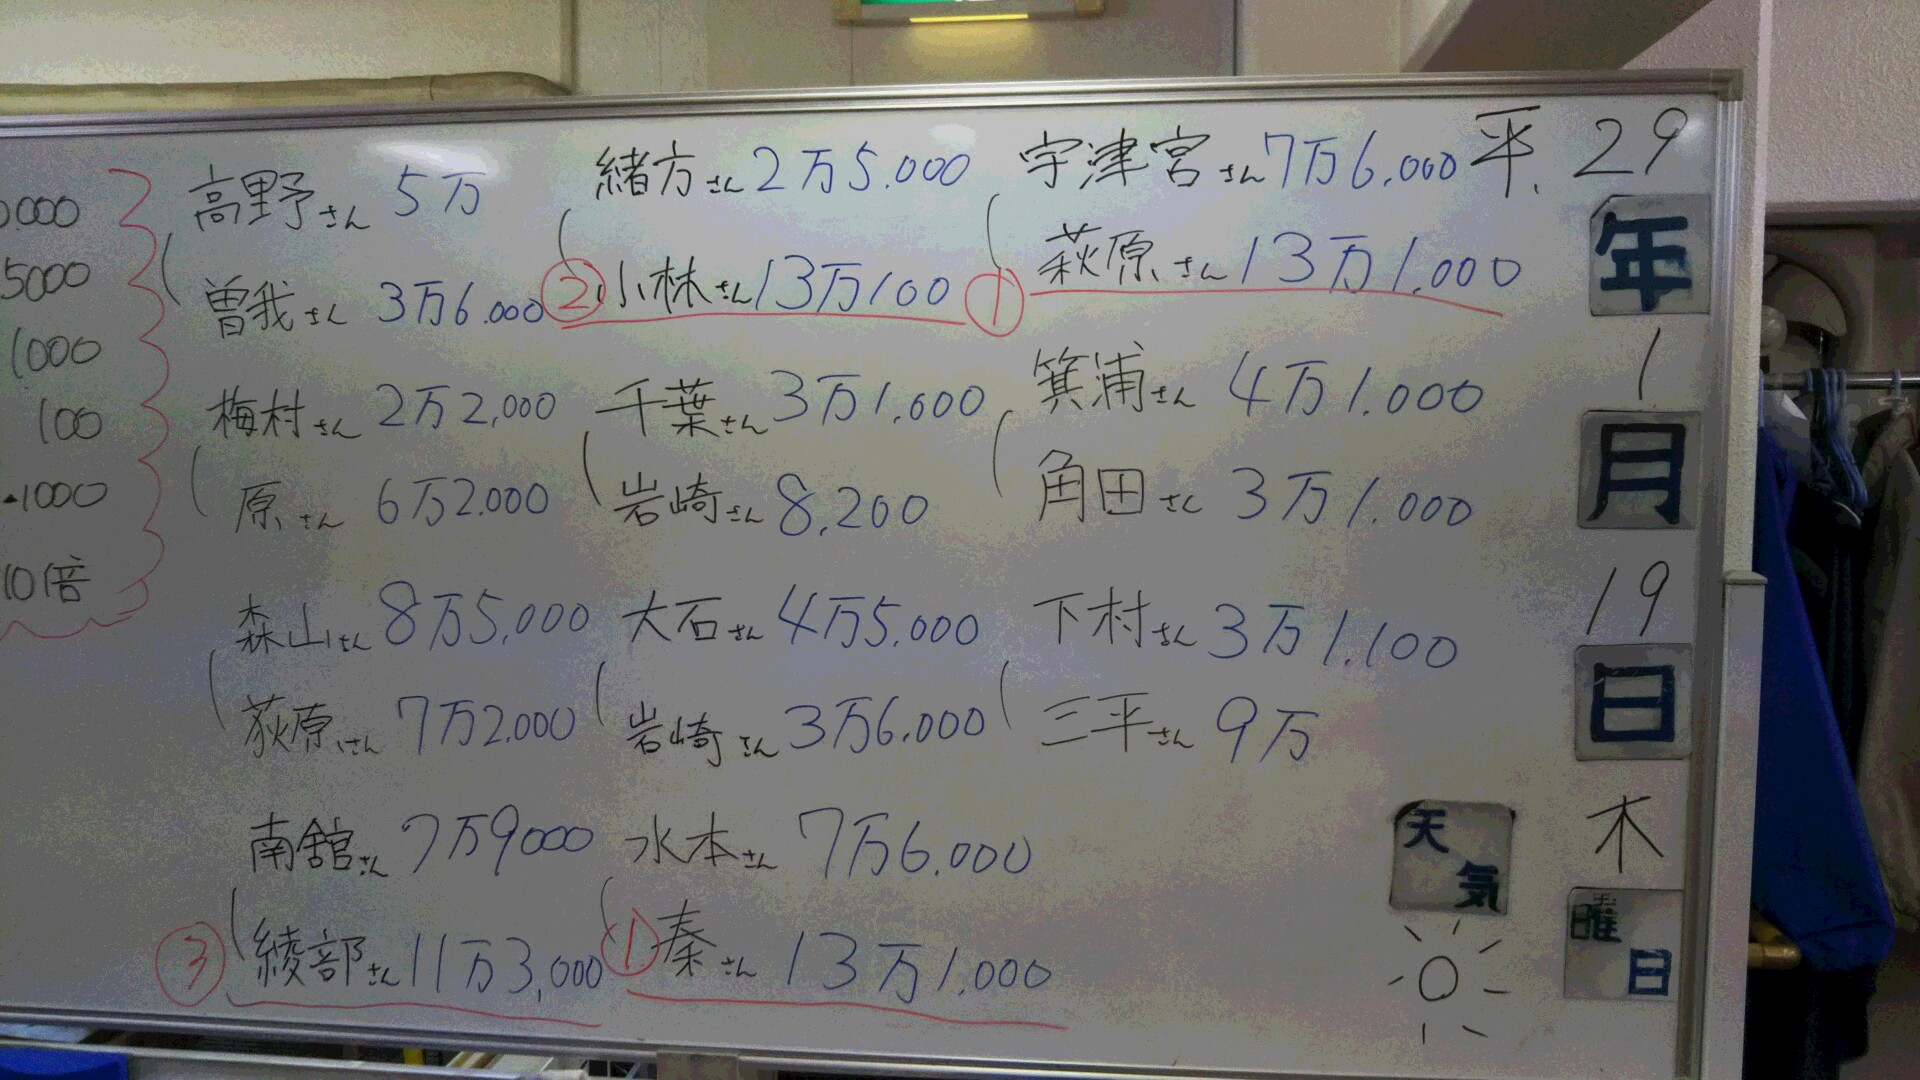 000
5000
1000
100
1000
10倍
高野さん 5万
曽我さん 3万6.000
梅村さん 2万2,000
原さん 6万2.000
森山さん 8万5,000
荻原さん 7万2.000
南舘さん 7万9000
③ 綾部さん 11万3,000
緒方さん 2万5.000
② 小林さん 13万100
千葉さん 3万1,000
岩崎さん 8,200
大石さん 4万5,000
岩崎さん 3万6,000
水本さん 7万6.000
① 秦さん 13万1.000
宇津宮さん 7万6.000
① 萩原さん 13万1.000
箕浦さん 4万1.000
角田さん 3万1.000
下村さん 3万1.100
三平さん 9万
平.29
年
1
月
19
日
木
曜日
天気